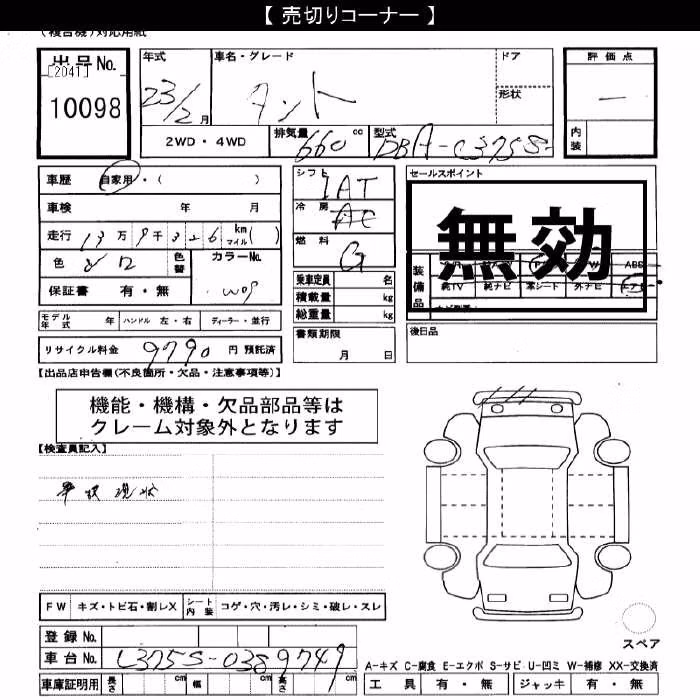 【 売切りコーナー 】
(複合機)対応用紙
出品No.
[2041]
10098
年式
23/2月
車名・グレード
タント
ドア
形状
評価点
—
内装
2WD・4WD
排気量
660 cc
型式
DBA-L375S
車歴 自家用・( )
車検 年 月
走行 13万9千326 km マイル( )
色 シロ
色替
カラーNo.
W09
保証書 有・無
シフト
IAT
冷房
AC
燃料
G
乗車定員 名
積載量 kg
総重量 kg
書類期限
月 日
セールスポイント
無効
装備品
ABS
純TV 純ナビ 革シート 外ナビ エアB
後日品
モデル年式 年 ハンドル 左・右 ディーラー・並行
リサイクル料金 9790 円 預託済
【出品店申告欄(不良箇所・欠品・注意事項等)】
機能・機構・欠品部品等は
クレーム対象外となります
【検査員記入】
車状現状
FW キズ・トビ石・割レX シート内装 コゲ・穴・汚レ・シミ・破レ・スレ
登録No.
車台No. L375S-0389749
車庫証明用 長さ cm 幅 cm 高さ cm
スペア
A-キズ C-腐食 E-エクボ S-サビ U-凹ミ W-補修 XX-交換済
工具 有・無 ジャッキ 有・無